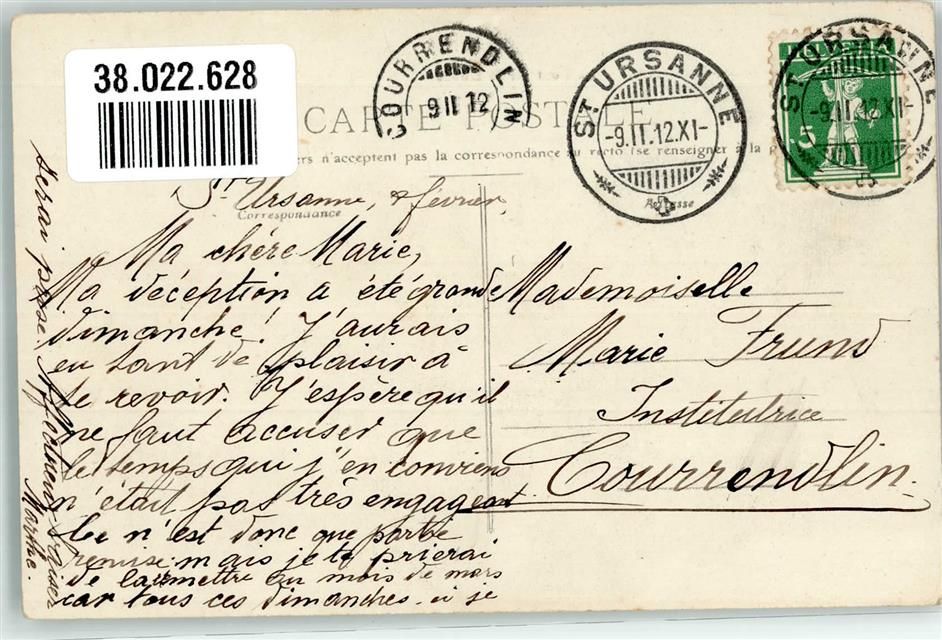 38.022.628
COURRENDLIN
9 II 12
ST URSANNE
-9.II.12.XI-
ST URSANNE
-9.II.12.XI-
HELVETIA
5
CARTE POSTALE
ers n'acceptent pas la correspondance au recto (se renseigner à la p
Correspondance
Adresse
St Ursanne, 8 février,
Ma chère Marie,
Ma déception a été grande
dimanche! J'aurais
eu tant de plaisir à
te revoir. J'espère qu'il
ne faut accuser que
le temps qui j'en conviens
n'était pas très engageant
Ce n'est donc que partie
remise mais je te prierai
de la remettre au mois de mars
car tous ces dimanches-ci je
serai prise. Affectueux baiser
Marthe.
Mademoiselle
Marie Frund
Institutrice
Courrendlin.